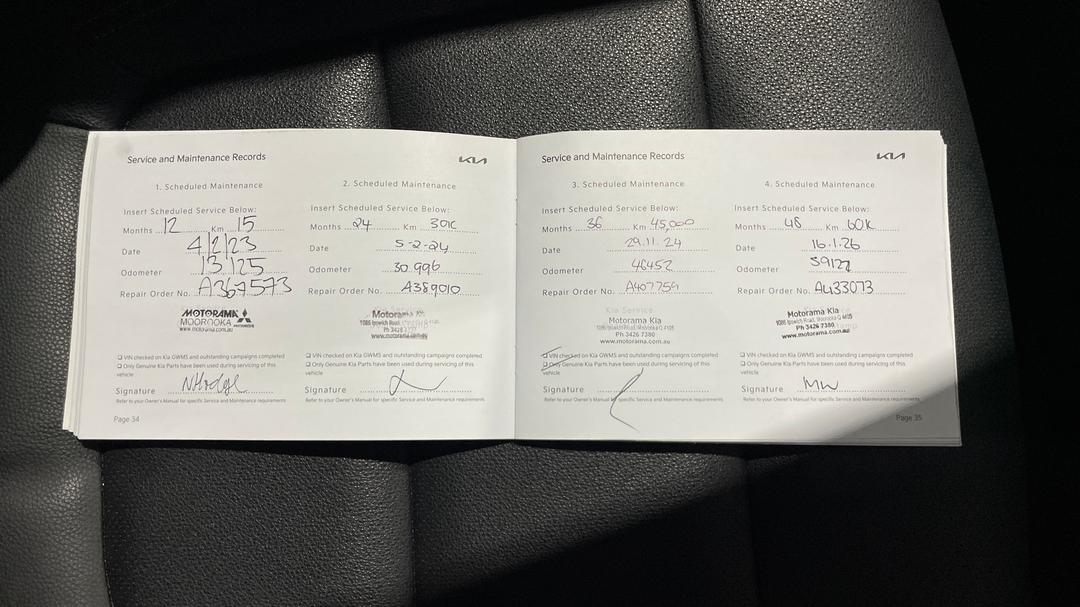 Service and Maintenance Records
KIA
1. Scheduled Maintenance
Insert Scheduled Service Below:
Months 12 Km 15
Date 4/2/23
Odometer 13125
Repair Order No. A367573
MOTORAMA
MOOROOKA
www.motorama.com.au
VIN checked on Kia GWMS and outstanding campaigns completed
Only Genuine Kia Parts have been used during servicing of this
vehicle
Signature
Refer to your Owner's Manual for specific Service and Maintenance requirements
Page 34
2. Scheduled Maintenance
Insert Scheduled Service Below:
Months 24 Km 30K
Date 5-2-24
Odometer 30996
Repair Order No. A389010
Motorama Kia
1086 Ipswich Road,
Ph 3426
www.motorama.com.au
VIN checked on Kia GWMS and outstanding campaigns completed
Only Genuine Kia Parts have been used during servicing of this
vehicle
Signature
Refer to your Owner's Manual for specific Service and Maintenance requirements
Service and Maintenance Records
KIA
3. Scheduled Maintenance
Insert Scheduled Service Below:
Months 36 Km 45,000
Date 29.11.24
Odometer 46452
Repair Order No. A407759
Kia Service
Motorama Kia
1086 Ipswich Road, Moorooka Q 4105
Ph 3426 7380
www.motorama.com.au
VIN checked on Kia GWMS and outstanding campaigns completed
Only Genuine Kia Parts have been used during servicing of this
vehicle
Signature
Refer to your Owner's Manual for specific Service and Maintenance requirements
4. Scheduled Maintenance
Insert Scheduled Service Below:
Months 48 Km 60K
Date 16.1.26
Odometer 59127
Repair Order No. A433073
Motorama Kia
1086 Ipswich Road, Moorooka Q 4105
Ph 3426 7380
www.motorama.com.au
VIN checked on Kia GWMS and outstanding campaigns completed
Only Genuine Kia Parts have been used during servicing of this
vehicle
Signature MW
Refer to your Owner's Manual for specific Service and Maintenance requirements
Page 35